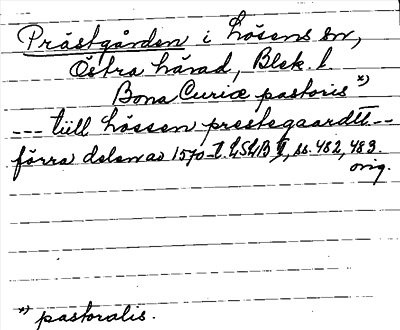 Prästgården i Lösens sn,
Östra härad, Blek. l
Bona Curiæ pastoris *)
--- tüll Lössen prestegaardtt --
förra delen av 1570-t. LSLB I, ss. 482, 483.
orig.
*) pastoralis.